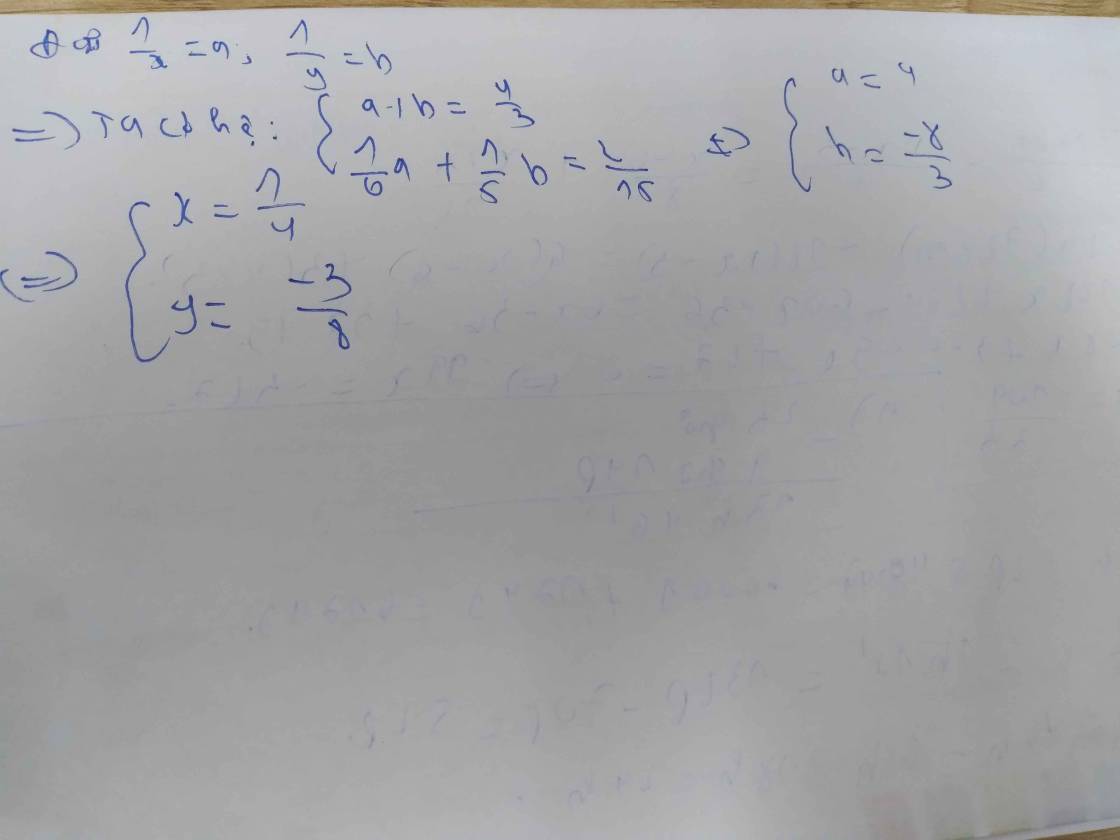 1/x = a; 1/y = b
=> Ta có hệ: { a + b = 4/3
1/6 a + 1/5 b = 2/15 <=> { a = 4
b = -8/3
<=> { x = 1/4
y = -3/8